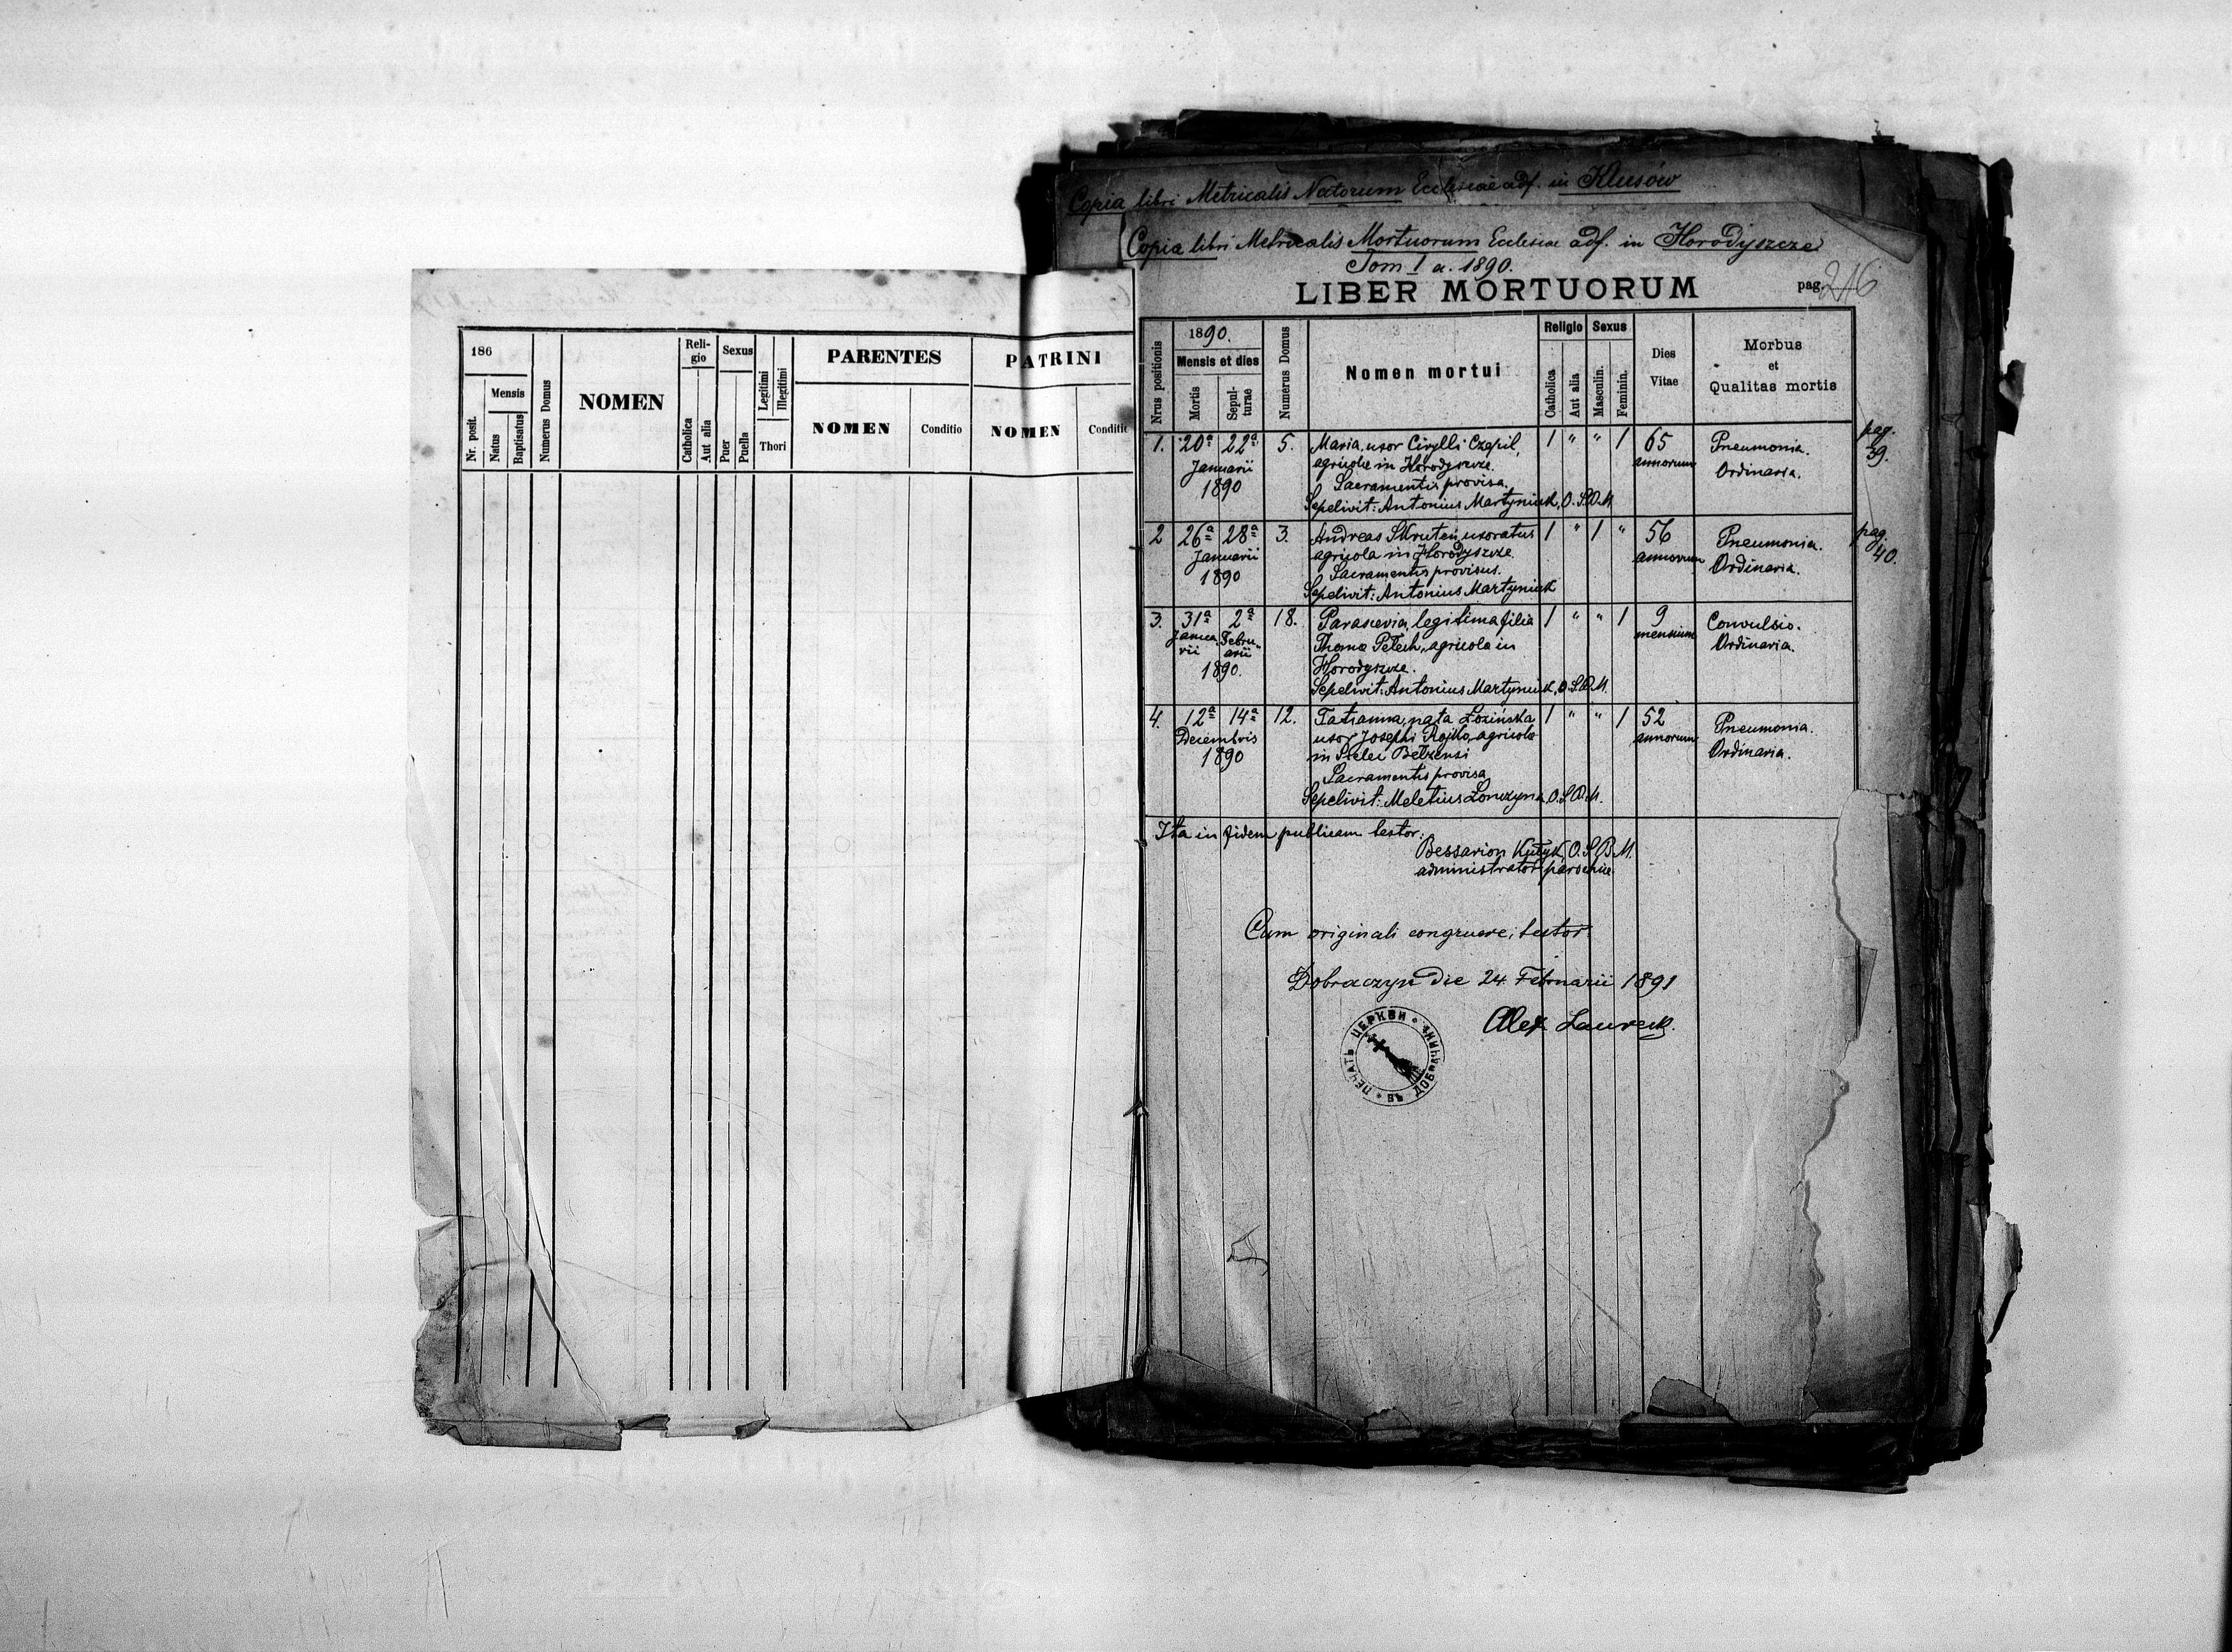 186
Mensis
Nr. posit.
Natus
Baptisatus
Numerus Domus
NOMEN
Reli-
gio
Catholica
Aut alia
Sexus
Puer
Puella
Legitimi
Illegitimi
Thori
PARENTES
NOMEN
Conditio
PATRINI
NOMEN
Conditio
Copia libri Metricalis Natorum Ecclesiae adf. in Klusów
Copia libri Metricalis Mortuorum Ecclesiae adf. in Horodyszcze
Tom I a. 1890.
LIBER MORTUORUM
pag. 216
Nrus positionis
1890.
Mensis et dies
Mortis
Sepul-
turae
Numerus Domus
Nomen mortui
Religio
Catholica
Aut alia
Sexus
Masculin.
Feminin.
Dies
Vitae
Morbus
et
Qualitas mortis
1. 20ª 22ª 5. Maria, uxor Cirylli Czepil, 1 " " 1 65 Pneumonia. pag.
Januarii agricolae in Horodyszcze. annorum Ordinaria. 39.
1890 Sacramentis provisa.
Sepelivit: Antonius Martyniuk, O.S.B.M.
2 26ª 28ª 3. Andreas Skruteń, uxoratus 1 " 1 " 56 Pneumonia. pag.
Januarii agricola in Horodyszcze. annorum Ordinaria. 40.
1890 Sacramentis provisus.
Sepelivit: Antonius Martyniuk
3. 31ª 2ª 18. Parascevia, legitima filia 1 " " 1 9 Convulsio.
Janua Febru Thomae Petech, agricola in mensium Ordinaria.
rii arii Horodyszcze.
1890. Sepelivit: Antonius Martyniuk, O.S.B.M.
4. 12ª 14ª 12. Tatianna, nata Łozińska 1 " " 1 52 Pneumonia.
Decembris uxor Josephi Rojko, agricolae annorum Ordinaria.
1890 in Sielec Bełzensi
Sacramentis provisa
Sepelivit: Meletius Łonczyna, O.S.B.M.
Ita in fidem publicam testor:
Bessarion Kyzyk, O.S.B.M.
administrator parochiae
Cum originali congruere, testor.
Dobraczyn die 24 Februarii 1891
Alex. Laureck
ПЕЧАТЬ ЦЕРКВИ * ВЪ ДОБРАЧИНѢ